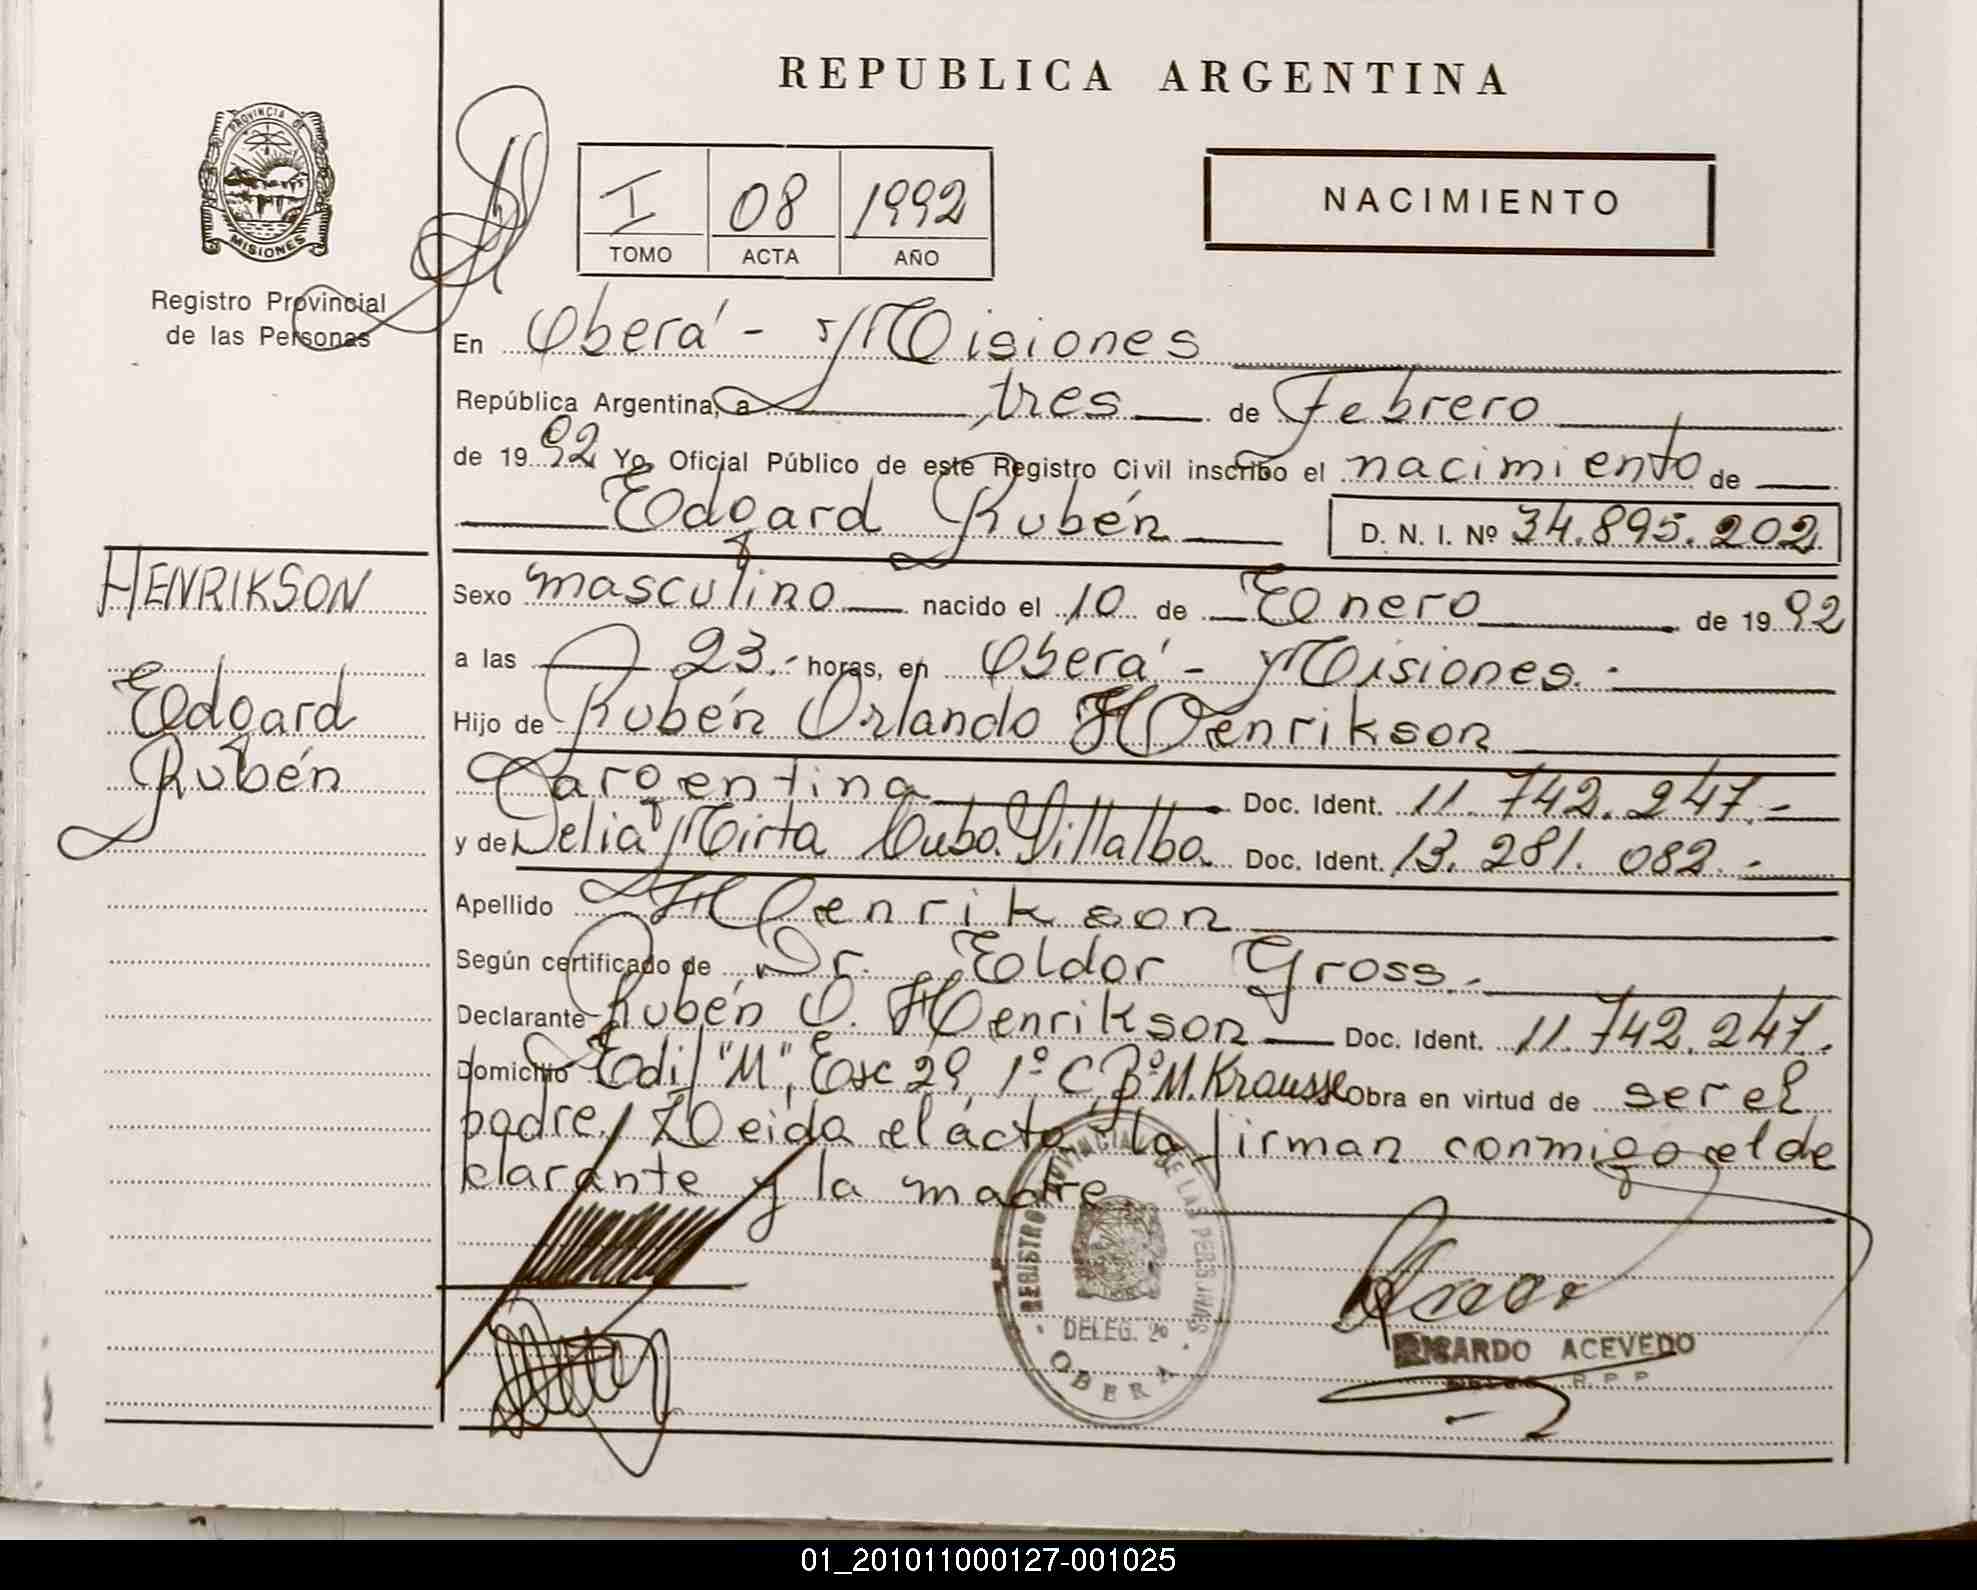 REPUBLICA ARGENTINA
PROVINCIA DE
MISIONES
Registro Provincial
de las Personas
I 08 1992
TOMO ACTA AÑO
NACIMIENTO
En Oberá - Misiones
República Argentina, a tres de Febrero
de 1992 Yo, Oficial Público de este Registro Civil inscribo el nacimiento de
Edgard Rubén D. N. I. Nº 34.895.202
HENRIKSON
Edgard
Rubén
Sexo masculino nacido el 10 de Enero de 1992
a las 23.- horas, en Oberá - Misiones.-
Hijo de Rubén Orlando Henrikson
argentina Doc. Ident. 11.742.247.-
y de Delia Mirta Cuba Villalba Doc. Ident. 13.281.082.-
Apellido Henrikson
Según certificado de Dr. Eldor Gross.-
Declarante Rubén O. Henrikson Doc. Ident. 11.742.247.
Domicilio Edif "M", Esc 29, 1º C, Bº M. Krausse Obra en virtud de ser el
padre/ Leída el acta la firman conmigo el de
clarante y la madre
REGISTRO PROVINCIAL DE LAS PERSONAS
DELEG.
OBERA
RICARDO ACEVEDO
R.P.P
01_201011000127-001025